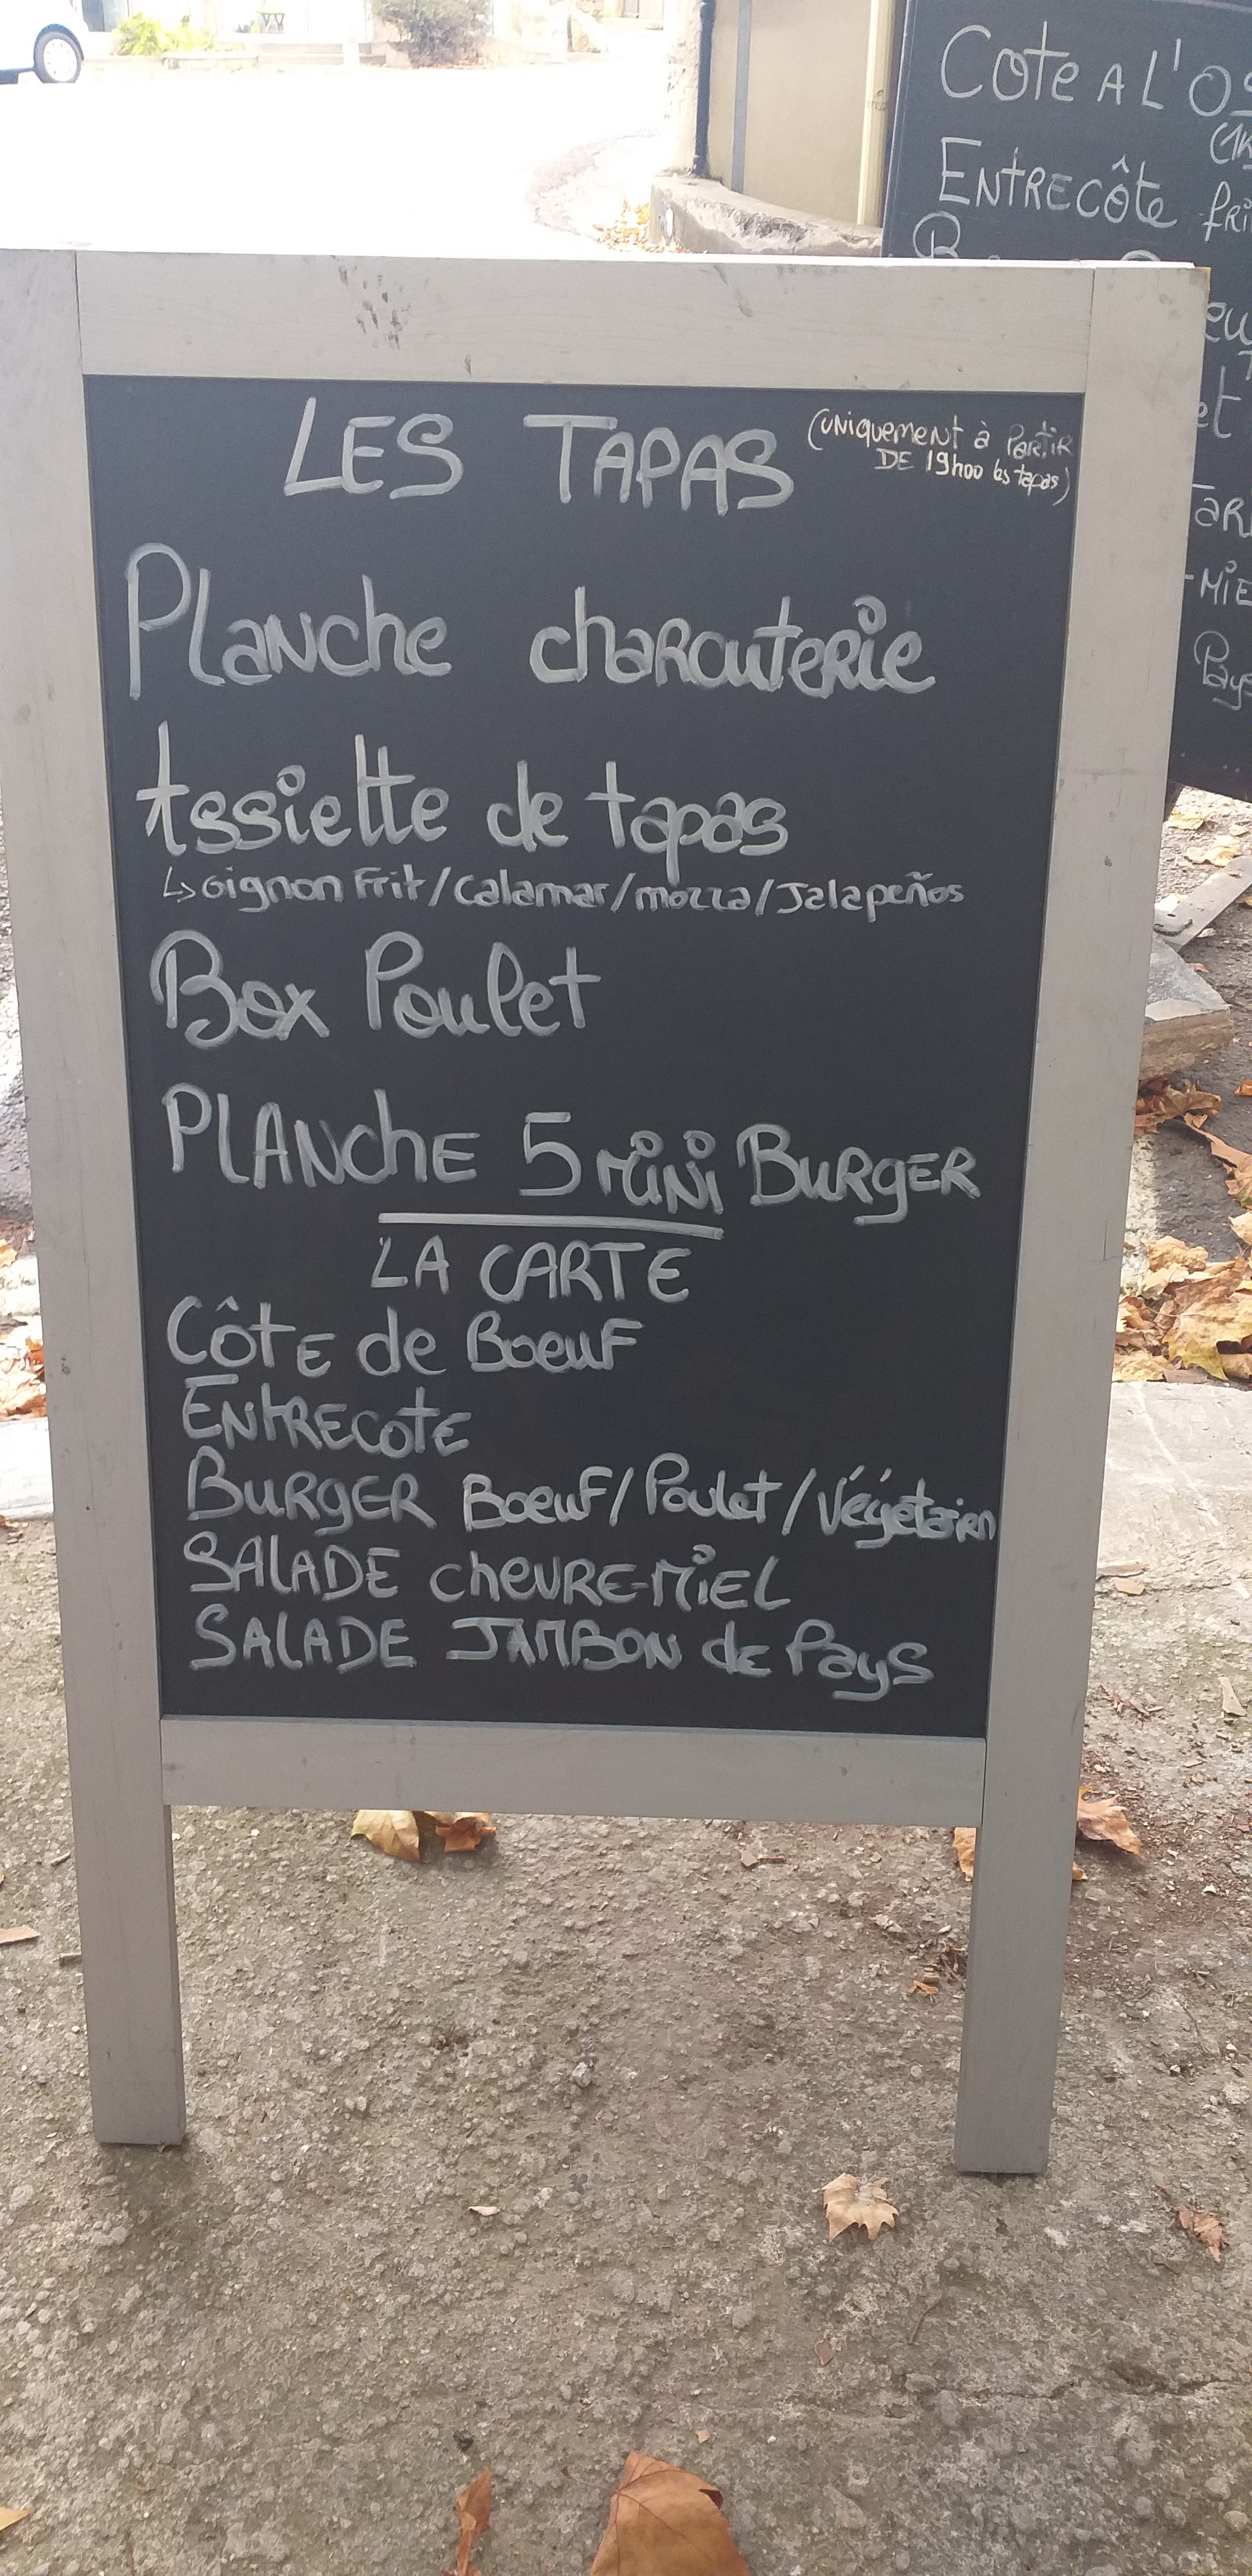 COTE A L'OS
(1K
ENTRECÔTE fri
LES TAPAS (UNIQUEMENT à PARTIR
DE 19h00 les tapas)
Planche charcuterie
Assiette de tapas
↳ oignon Frit/Calamar/mozza/Jalapeños
Box Poulet
PLANCHE 5 MiNi BURGER
LA CARTE
CÔTE de BoeuF
ENTRECOTE
BURGER BoeuF/Poulet/Végétarien
SALADE chEVRE-MiEL
SALADE JAMBON de Pays
eu
et
TAR
-MIE
Pays